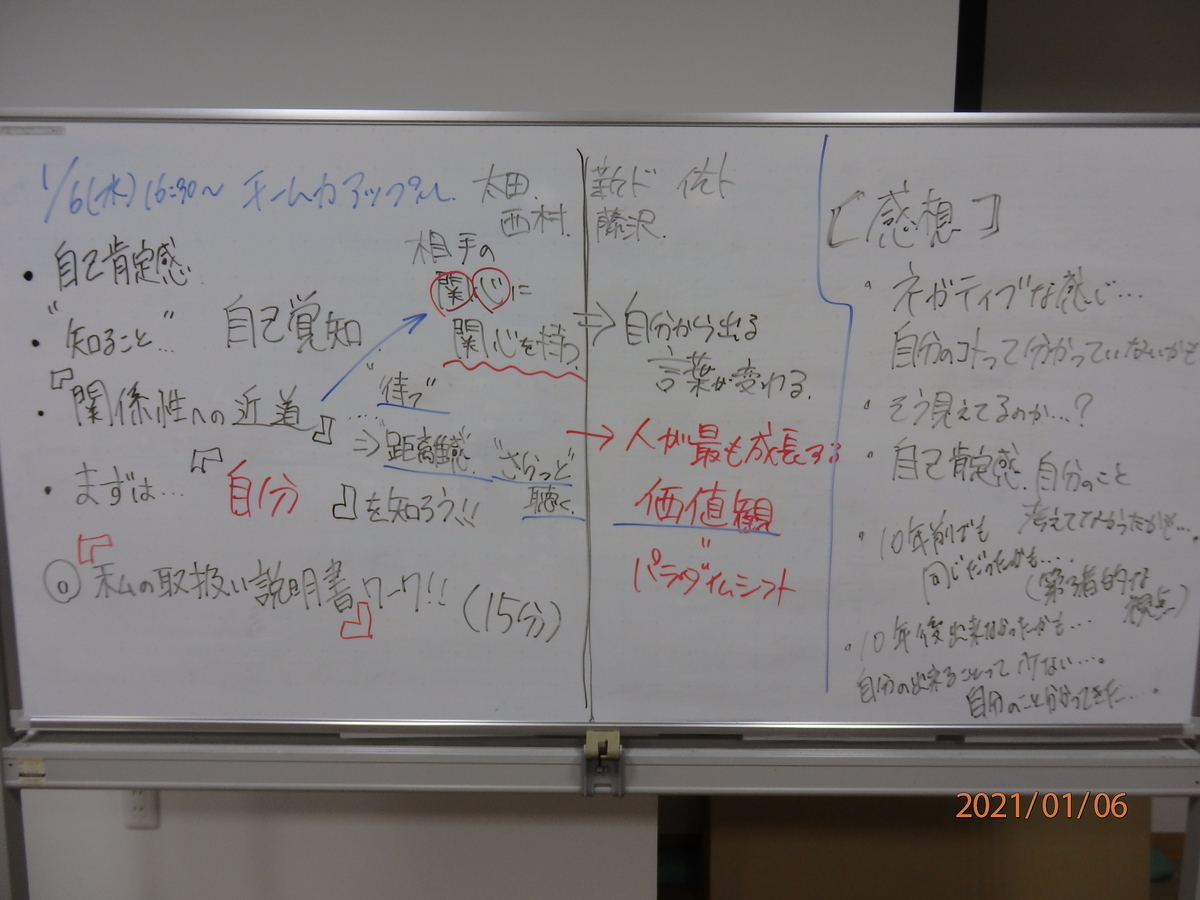 1/6(水) 16:30〜 チーム力アップ
太田.
西村.
藤沢.
・自己肯定感
・"知ること"… 自己覚知
・『関係性への近道』
・まずは…『自分』を知ろう!!
◎『私の取扱い説明書ワーク!!』(15分)
相手の
関心に
関心を持つ
"待つ"
⇒"距離感" "さらっと"
聴く.
⇒自分から出る
言葉が変わる.
→人が最も成長する
価値観
"
パラダイムシフト
[感想]
・ネガティブな感じ…
自分のコトって分かっていないかも
・そう見えてるのか…?
・自己肯定感.自分のこと
考えてなかったかも….
・10年前でも
同じだったかも….
(第3者的な
視点)
・10年後出来なかったかも…
自分の出来ることって少ない….
自分のこと分かってきた….
2021/01/06